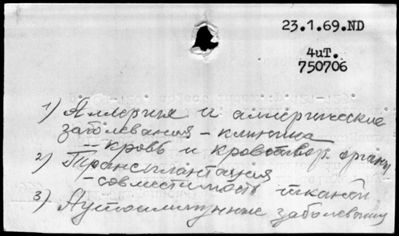 23.1.69.ND
4иТ.
750706
1) Аллергия и аллергические
заболевания – клиника
– кровь и кровотвор. органы
2) Трансплантация
– совместимость тканей
3) Аутоиммунные заболевания